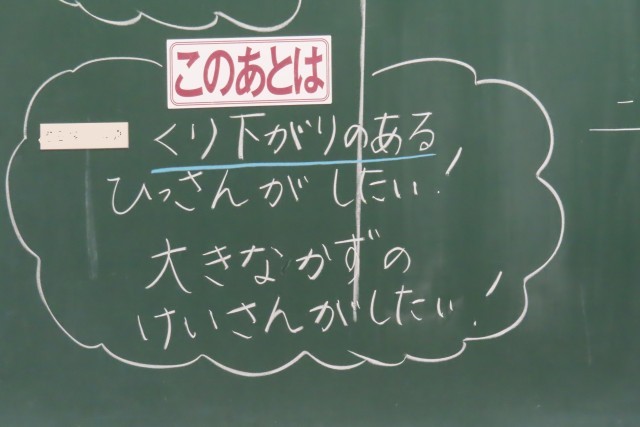 このあとは
くり下がりのある
ひっさんがしたい!
大きなかずの
けいさんがしたい!